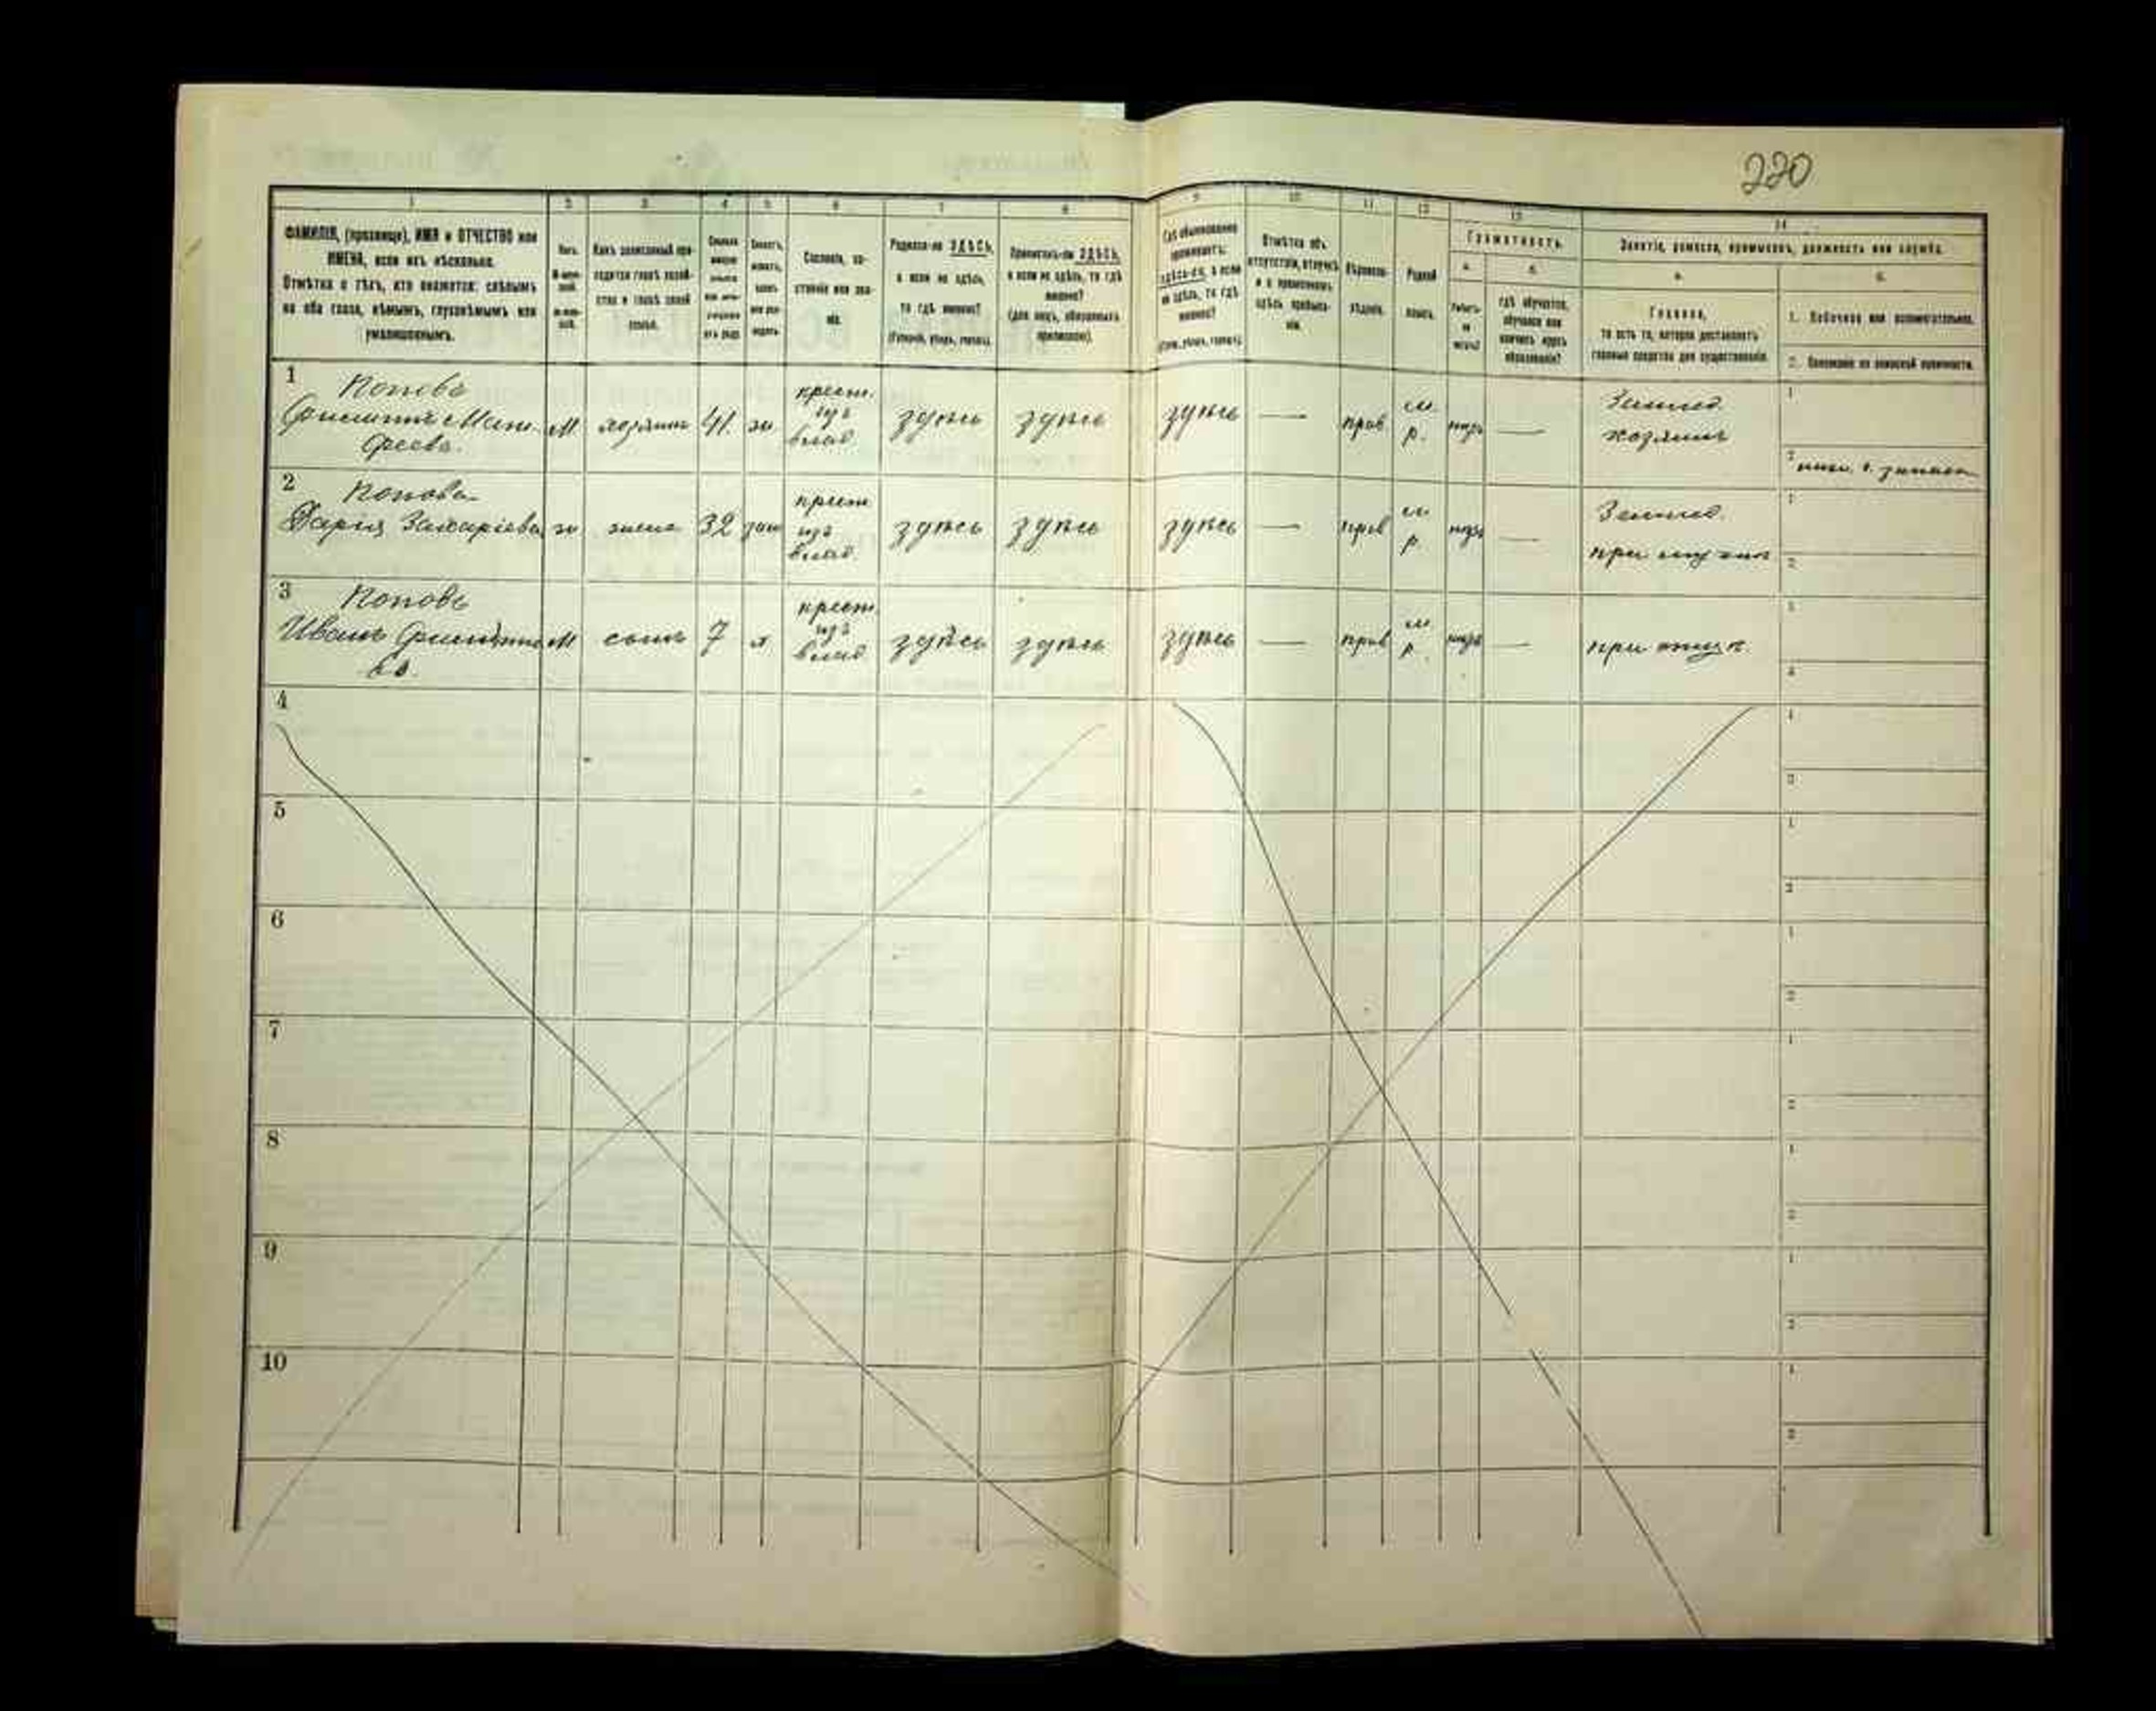 220
1 2 3 4 5 6 7 8 9 10 11 12 13 14
ФАМИЛІЯ, (прозвище), ИМЯ и ОТЧЕСТВО или
ИМЕНА, если ихъ нѣсколько.
Отмѣтка о тѣхъ, кто окажется: слѣпымъ
на оба глаза, нѣмымъ, глухонѣмымъ или
умалишеннымъ.
Полъ.
Какъ записанный при-
ходится главѣ хозяй-
ства и главѣ своей
семьи.
Сословіе, со-
стояніе или зва-
ніе.
Родился-ли ЗДѢСЬ,
а если не здѣсь,
то гдѣ именно?
(Губернія, уѣздъ, городъ).
Приписанъ-ли ЗДѢСЬ,
а если не здѣсь, то гдѣ
именно?
(для лицъ, обязанныхъ
припискою).
Гдѣ обыкновенно
проживаетъ:
здѣсь-ли, а если
не здѣсь, то гдѣ
именно?
(Губ., уѣздъ, городъ).
Отмѣтка объ
отсутствіи, отлучкѣ
и о временномъ
здѣсь пребыва-
ніи.
Вѣроиспо-
вѣданіе.
Родной
языкъ.
Грамотность.
а.
б.
гдѣ обучается,
обучался или
кончилъ курсъ
образованія?
Занятіе, ремесло, промыселъ, должность или служба.
а.
Главное,
то есть то, которое доставляетъ
главныя средства для существованія.
б.
1. Побочное или вспомогательное.
2. Положеніе по воинской повинности.
1 Поповъ
Филиппъ Мат-
феевъ.
М хозяинъ 41. ж
крест.
изъ
влад.
здѣсь здѣсь здѣсь — прав.
м.
р.
—
Землед.
хозяинъ
1
2
2 Попова
Дарія Захаріева ж жена 32 зам
крест
изъ
влад.
здѣсь здѣсь здѣсь — прав
м
р.
—
Землед.
при
1
2
3 Поповъ
Иванъ Филиппо
въ.
М сынъ 7 х
крест
изъ
влад
здѣсь здѣсь здѣсь — прав
м
р.
—
при
1
2
4
1
2
5
1
2
6
1
2
7
1
2
8
1
2
9
1
2
10
1
2